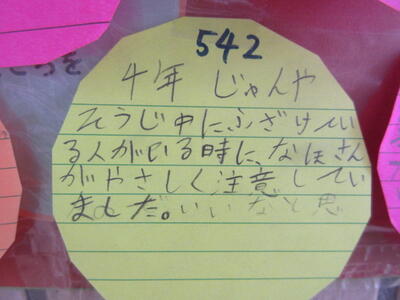 542
4年 じゃんや
そうじ中にふざけてい
る人がいる時に、なほさん
がやさしく注意してい
ました。いいなと思